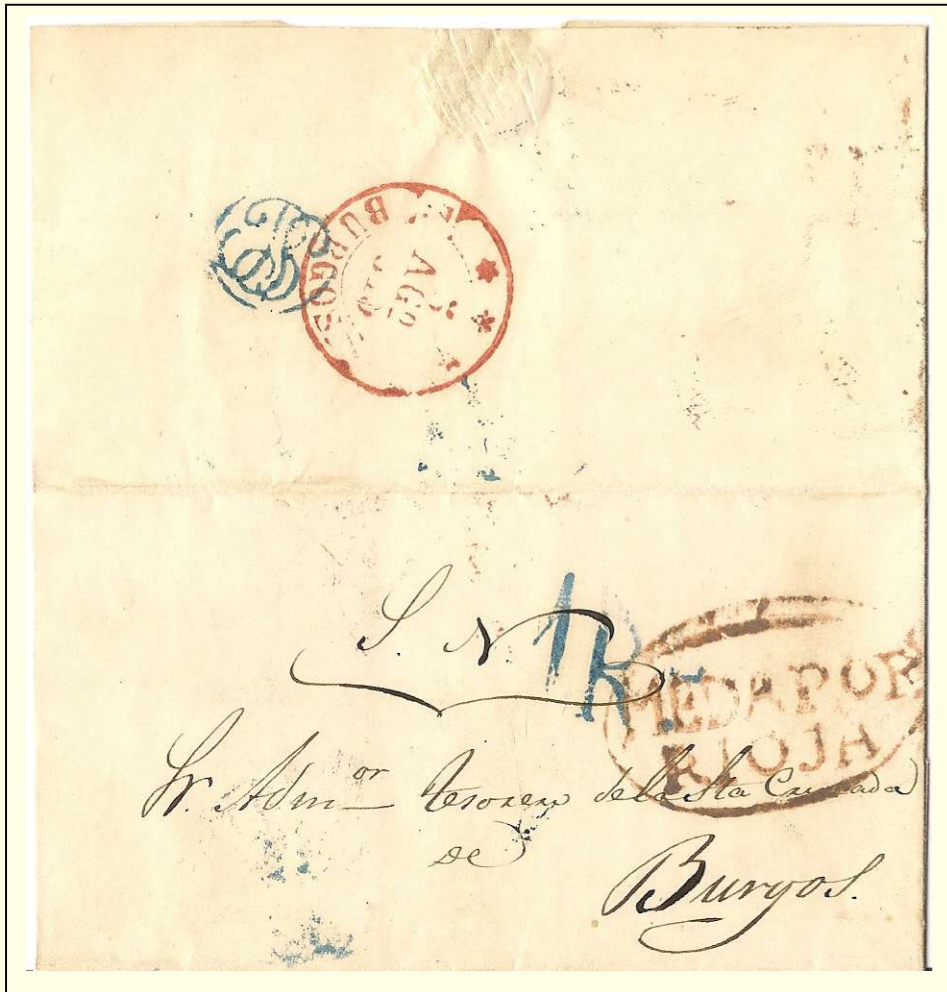 BURGOS
AGO
S. N.
1R.
MEDAPOR
RIOJA
Sr. Adm.or tesorero de la Sta Cruzada
de
Burgos.